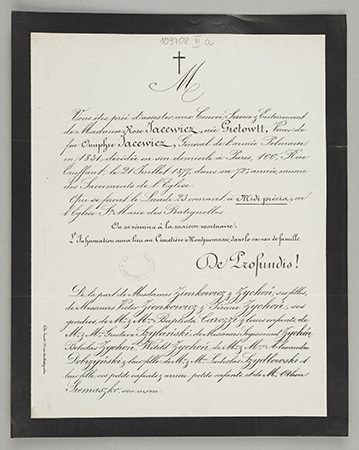 109708 III a
M
Vous êtes prié d'assister aux Convoi, Service & Enterrement
de Madame Rose Jacewicz, née Gietowtt, Veuve de
feu Onuphre Jacewicz, Général de l'armée Polonaise
en 1831, décédée en son domicile à Paris, 100, Rue
le 21 Juillet 1877, dans sa 72e année, munie
des Sacrements de l'Eglise.
Qui se feront le Lundi 23 courant, à Midi précis, en
l'Eglise Ste Marie des Batignolles.
On se réunira à la maison mortuaire.
L'Inhumation aura lieu au Cimetière Montparnasse, dans le caveau de famille.
De Profundis!
De la part de Mesdames Zienkowicz & Zychoń, ses filles,
de Messieurs Victor Zienkowicz & Zychoń, ses
gendres, de Mr & Me Baptista & leurs enfants, de
Mr & Me Gustave de Messieurs Sigismond Zychoń,
Boleslas Zychoń, Witold Zychoń, de Mr & Me Alexandre
Dobrzyński & leur fille, de Mr & Me Ladislas Szydlowski &
leur fille, ses petits enfants & arrière petits enfants, & de Mr
son neveu.